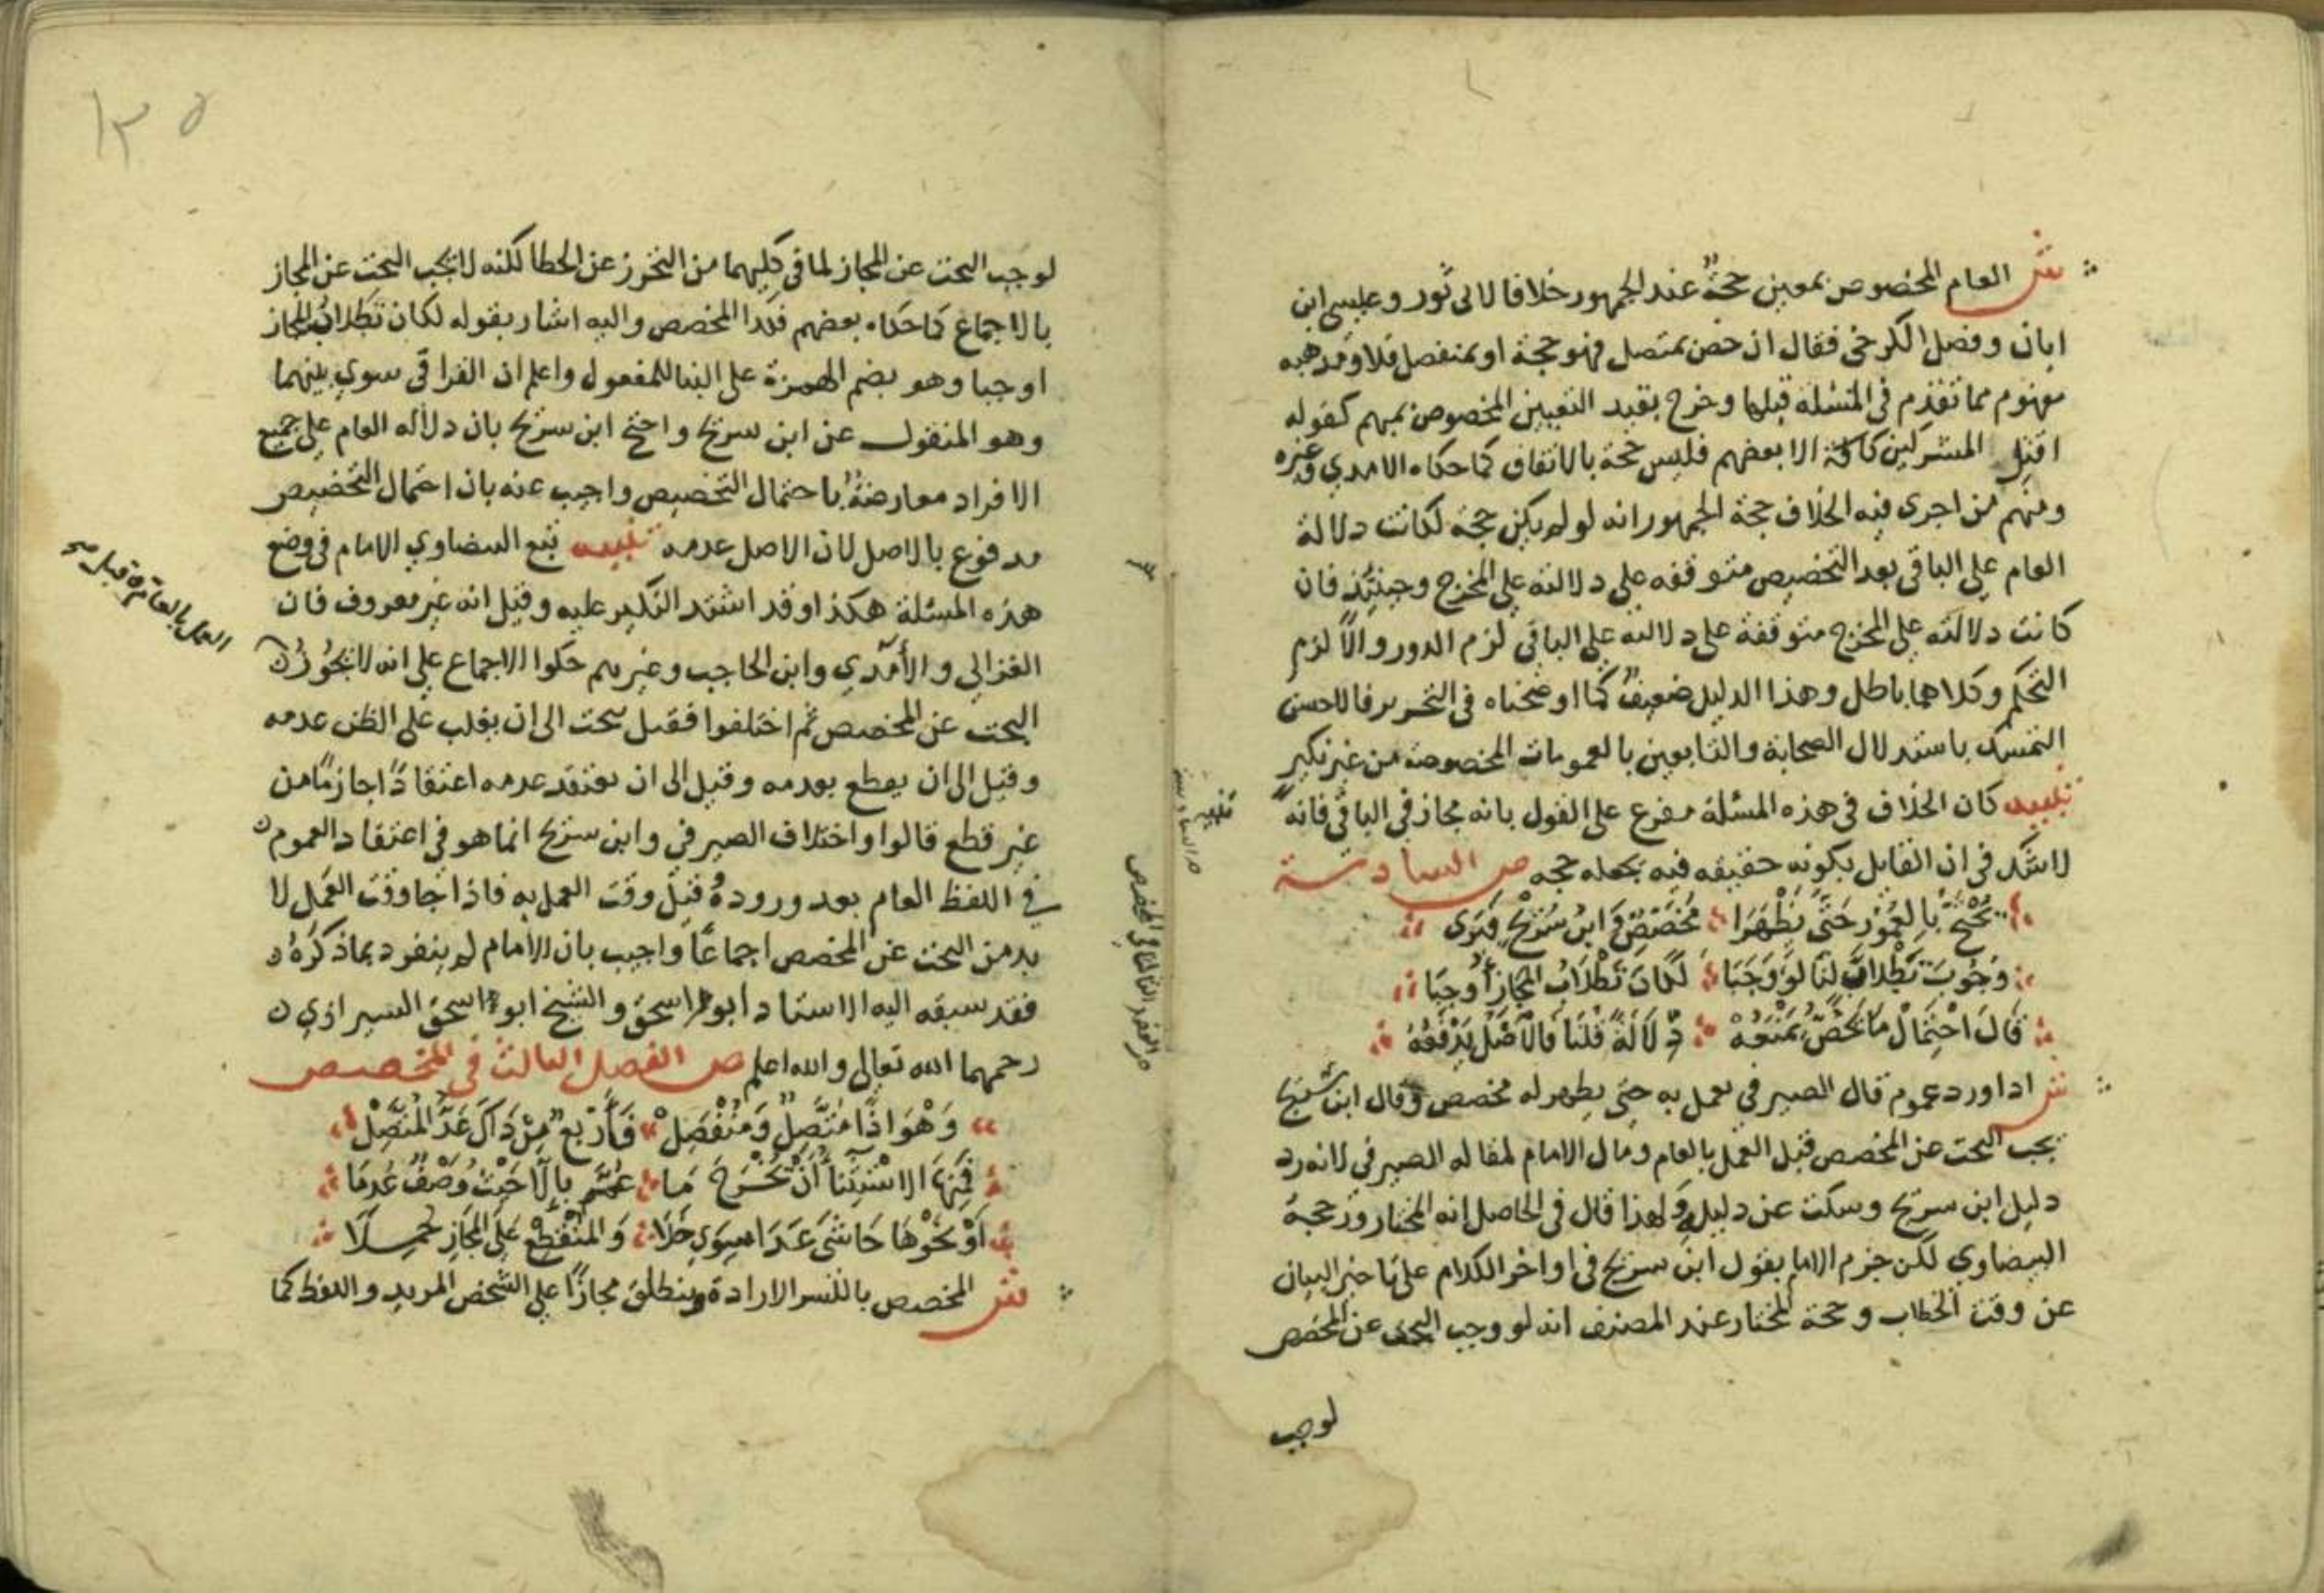 ش العام المخصوص بمعين حجة عند الجمهور خلافا لابى ثور وعيسى ابن
ابان وفصل الكرخى فقال ان خص بمتصل فهو حجة او بمنفصل فلا ومذهبه
مفهوم مما تقدم فى المسئلة قبلها وخرج بقيد التعيين المخصوص بمبهم كقوله
اقتل المشركين كافة الا بعضهم فليس حجة بالاتفاق كما حكاه الامدي وغيره
ومنهم من اجرى فيه الخلاف حجة الجمهور انه لو لم يكن حجة لكانت دلالة
العام على الباقى بعد التخصيص متوقفه على دلالته على المخرج وحينئذ فان
كانت دلالته على المخرج متوقفة على دلالته على الباقى لزم الدور والا لزم
التحكم وكلاهما باطل وهذا الدليل ضعيف كما اوضحناه فى التحرير فالاحسن
التمسك باستدلال الصحابة والتابعين بالعمومات المخصوصة من غير نكير
تنبيه كان الخلاف فى هذه المسئلة مفرع على القول بانه مجاز فى الباقى فانه
لا شك فى ان القايل بكونه حقيقه فيه يجعله حجه ص السادسة
يحتج بالعموم حتى يظهرا مخصص وابن سريج فيرى
وجوب تطلاب لنا لو وجبا لكان تطلاب المجاز أوجبا
قال احتمال ما يخص يمنعه دلالة قلنا فالاصل يدفعه
ش اذا ورد عموم قال الصيرفي يعمل به حتى يظهر له مخصص وقال ابن سريج
يجب البحث عن المخصص قبل العمل بالعام ومال الامام لمقاله الصيرفى لانه رد
دليل ابن سريج وسكت عن دليله ولهذا قال فى الحاصل انه المختار ورجحه
البيضاوي لكن جزم الامام بقول ابن سريج فى اواخر الكلام على تاخير البيان
عن وقت الخطاب وحجة المختار عند المصنف انه لو وجب البحث عن المخصص
لوجب
١٣٥
لوجب البحث عن المجاز لما فى كليهما من التحرز عن الخطا لكنه لا يجب البحث عن المجاز
بالاجماع كما حكاه بعضهم فكذا المخصص واليه اشار بقوله لكان تطلاب المجاز
اوجبا وهو بضم الهمزة على البنا للمفعول واعلم ان القرافى سوي بينهما
وهو المنقول عن ابن سريج واحتج ابن سريج بان دلالة العام على جميع
الافراد معارضة باحتمال التخصيص واجيب عنه بان احتمال التخصيص
مدفوع بالاصل لان الاصل عدمه تنبيه تبع البيضاوي الامام فى وضع
هذه المسئلة هكذا وقد اشتد النكير عليه وقيل انه غير معروف فان
الغزالي والأمدي وابن الحاجب وغيرهم حكوا الاجماع على انه لا يجوز
البحث عن المخصص ثم اختلفوا فقيل يبحث الى ان يغلب على الظن عدمه
وقيل الى ان يقطع بعدمه وقيل الى ان يعتقد عدمه اعتقادًا جازمًا من
غير قطع قالوا واختلاف الصيرفي وابن سريج انما هو فى اعتقاد العموم
في اللفظ العام بعد وروده وقبل وقت العمل به فاذا جا وقت العمل لا
بد من البحث عن المخصص اجماعًا واجيب بان الامام لم ينفرد بما ذكره
فقد سبقه اليه الاستاد أبو اسحق والشيخ ابو اسحق الشيرازي
رحمهما الله تعالى والله اعلم ص الفصل الثالث فى المخصص
وهو اذًا متصل ومنفصل فأربع من ذاك عد المتصل
فمنها الاستثنا أن تخرج ما عم بإلا حيث وصف عدما
أو نحوها حاشى عدا سوى خلا والمنقطع على المجاز حملا
ش المخصص بالكسر الارادة وينطلق مجازًا على الشخص المريد واللفظ كما